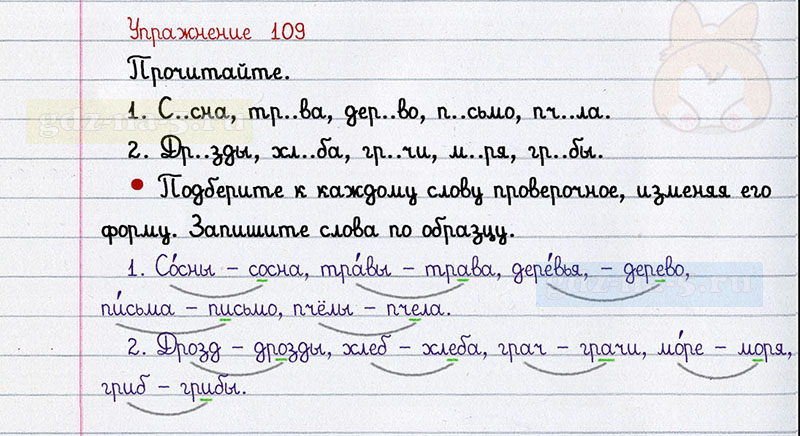 Упражнение 109
Прочитайте.
1. С..сна, тр..ва, дер..во, п..сьмо, пч..ла.
2. Др..зды, хл..ба, гр..чи, м..ря, гр..бы.
• Подберите к каждому слову проверочное, изменяя его
форму. Запишите слова по образцу.
1. Со́сны – сосна, тра́вы – трава, дере́вья, – дерево,
пи́сьма – письмо, пчёлы – пчела.
2. Дрозд – дрозды, хлеб – хлеба, грач – грачи, мо́ре – моря,
гриб – грибы.